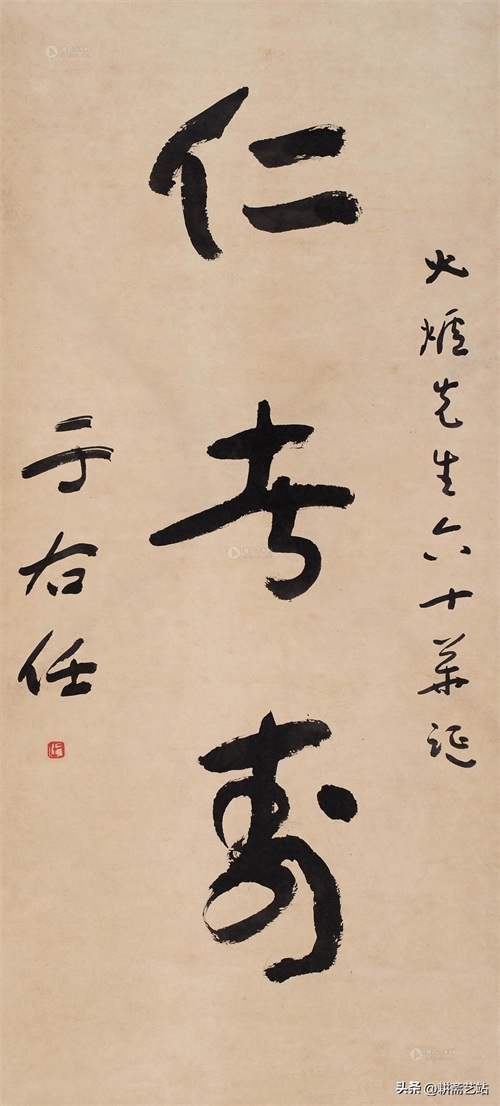 火爐先生六十華誕
仁者壽
于右任
头条 @耕斋艺站